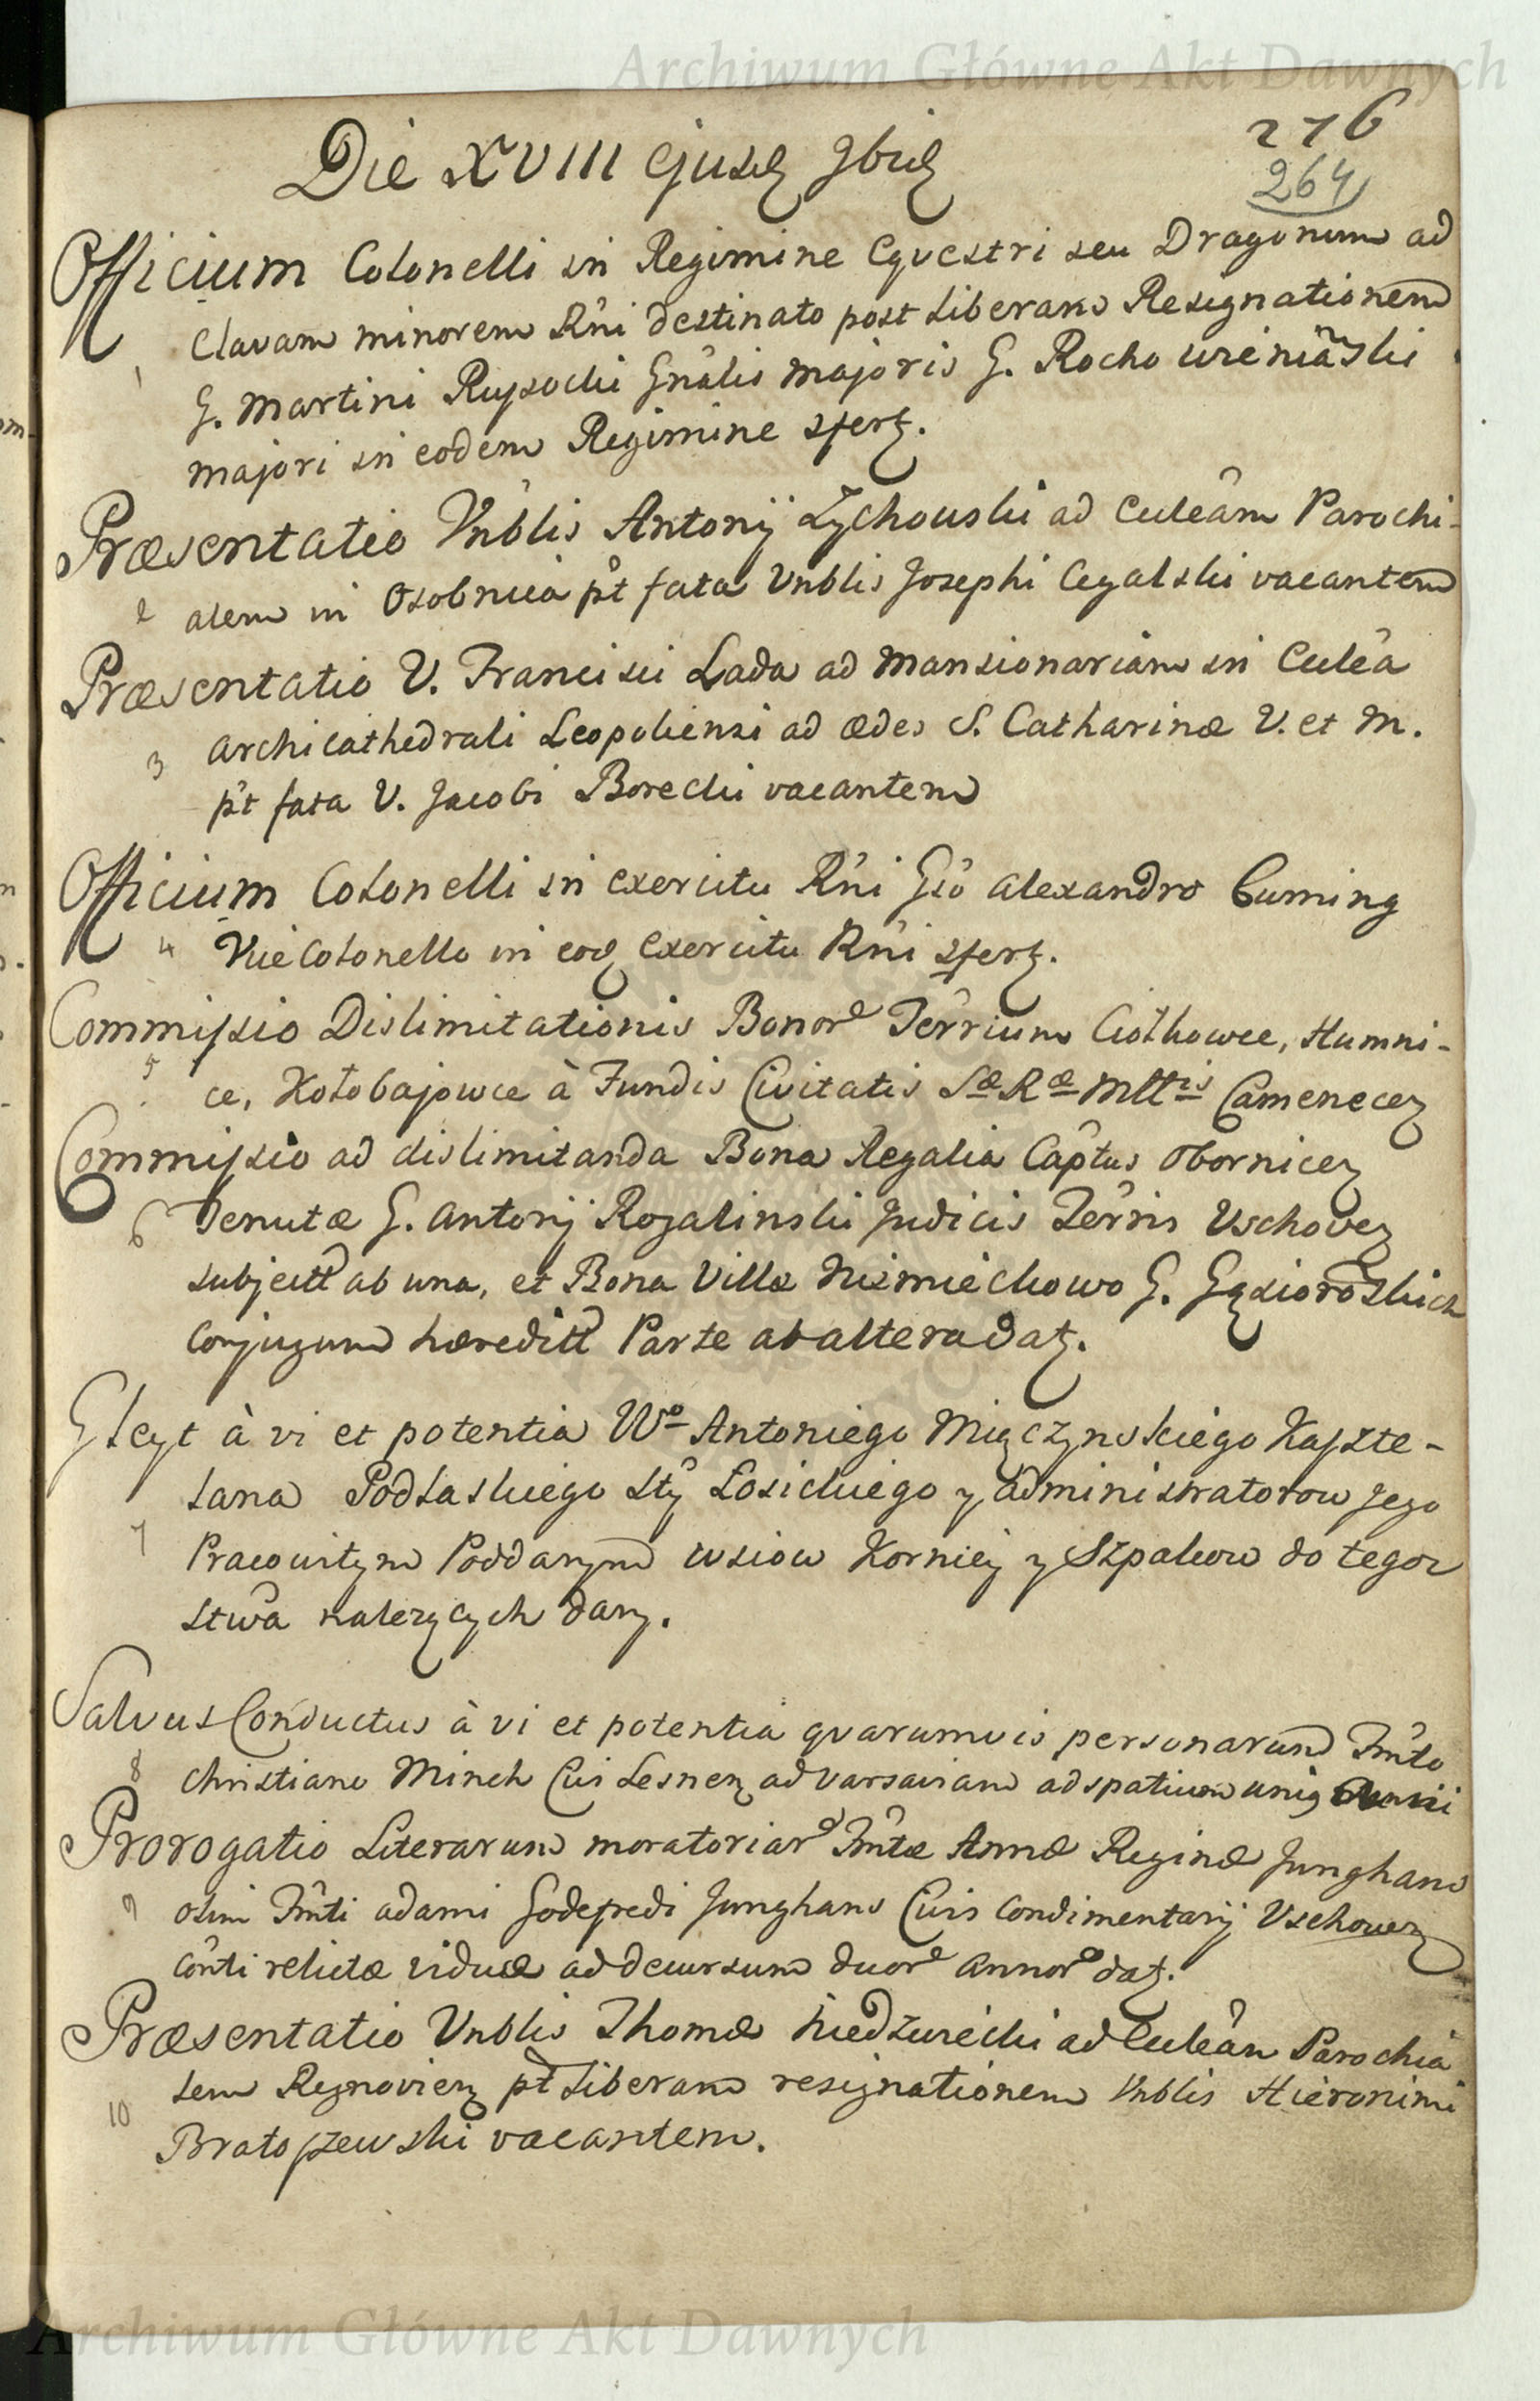 Archiwum Główne Akt Dawnych
276
264
Die XVIII ejusd 9bris
Officium Colonelli in Regimine Eqvestri seu Dragonum ad
1 Clavam minorem Rñi destinato post Liberam Resignationem
G. Martini Rupsocki Gñalis Majoris G. Rocho Wieniaski
Majori in eodem Regimine sfert.
Præsentatio Vnblis Antonij Zychouski ad Ecclêam Parochi-
2 alem in Osobnica pt fata Vnblis Josephi Cegalski vacantem
Præsentatio V. Francisci Lada ad Mansionariam in Ecclêa
3 Archicathedrali Leopoliensi ad ædes S. Catharinæ V. et M.
pt fata V. Jacobi Borecki vacantem
Officium Colonelli in Exercitu Rñi Gso Alexandro Cuming
4 ViceColonello in eod Exercitu Rñi sfert.
Commissio Dislimitationis Bonor Terrium Ciołkowce, Humni-
5 ce, Kołobajowce à Fundis Civitatis Sæ Ræ Mttis Camenecen
Commissio ad dislimitanda Bona Regalia Captus Obornicen
6 Tenutæ G. Antonij Rogalinski Judicis Terris Vschoven
subjectt ab una, et Bona Villæ Niemieckowo G. Gąsiorowskich
Conjugum hæreditt Parte ab altera dat.
Gleyt à vi et potentia Wo Antoniego Miączynskiego Kaszte-
lana Podlaskiego Sty Łosickiego y administratorow Jego
7 Pracowitym Poddanym wsiow Korniey y Szpakow do tegoz
Stwa nalezących dany.
Salvus Conductus à vi et potentia qvarumvis personarum Fmto
8 Christiano Minch Civi Lesnen ad Varsaviam ad spatium unig Anni
Prorogatio Literarum moratoriar Fmtæ Annæ Reginæ Junghans
9 olim Fmti Adami Godefredi Junghans Civis Condimentarij Vschoven
Conti relictæ viduæ ad decursum duor Annor dat.
Præsentatio Vnblis Thomæ Niedzwiecki ad Ecclêam Parochia
lem Rynovien pt Liberam resignationem Vnblis Hieronimi
10 Bratoszewski vacantem.
Archiwum Główne Akt Dawnych